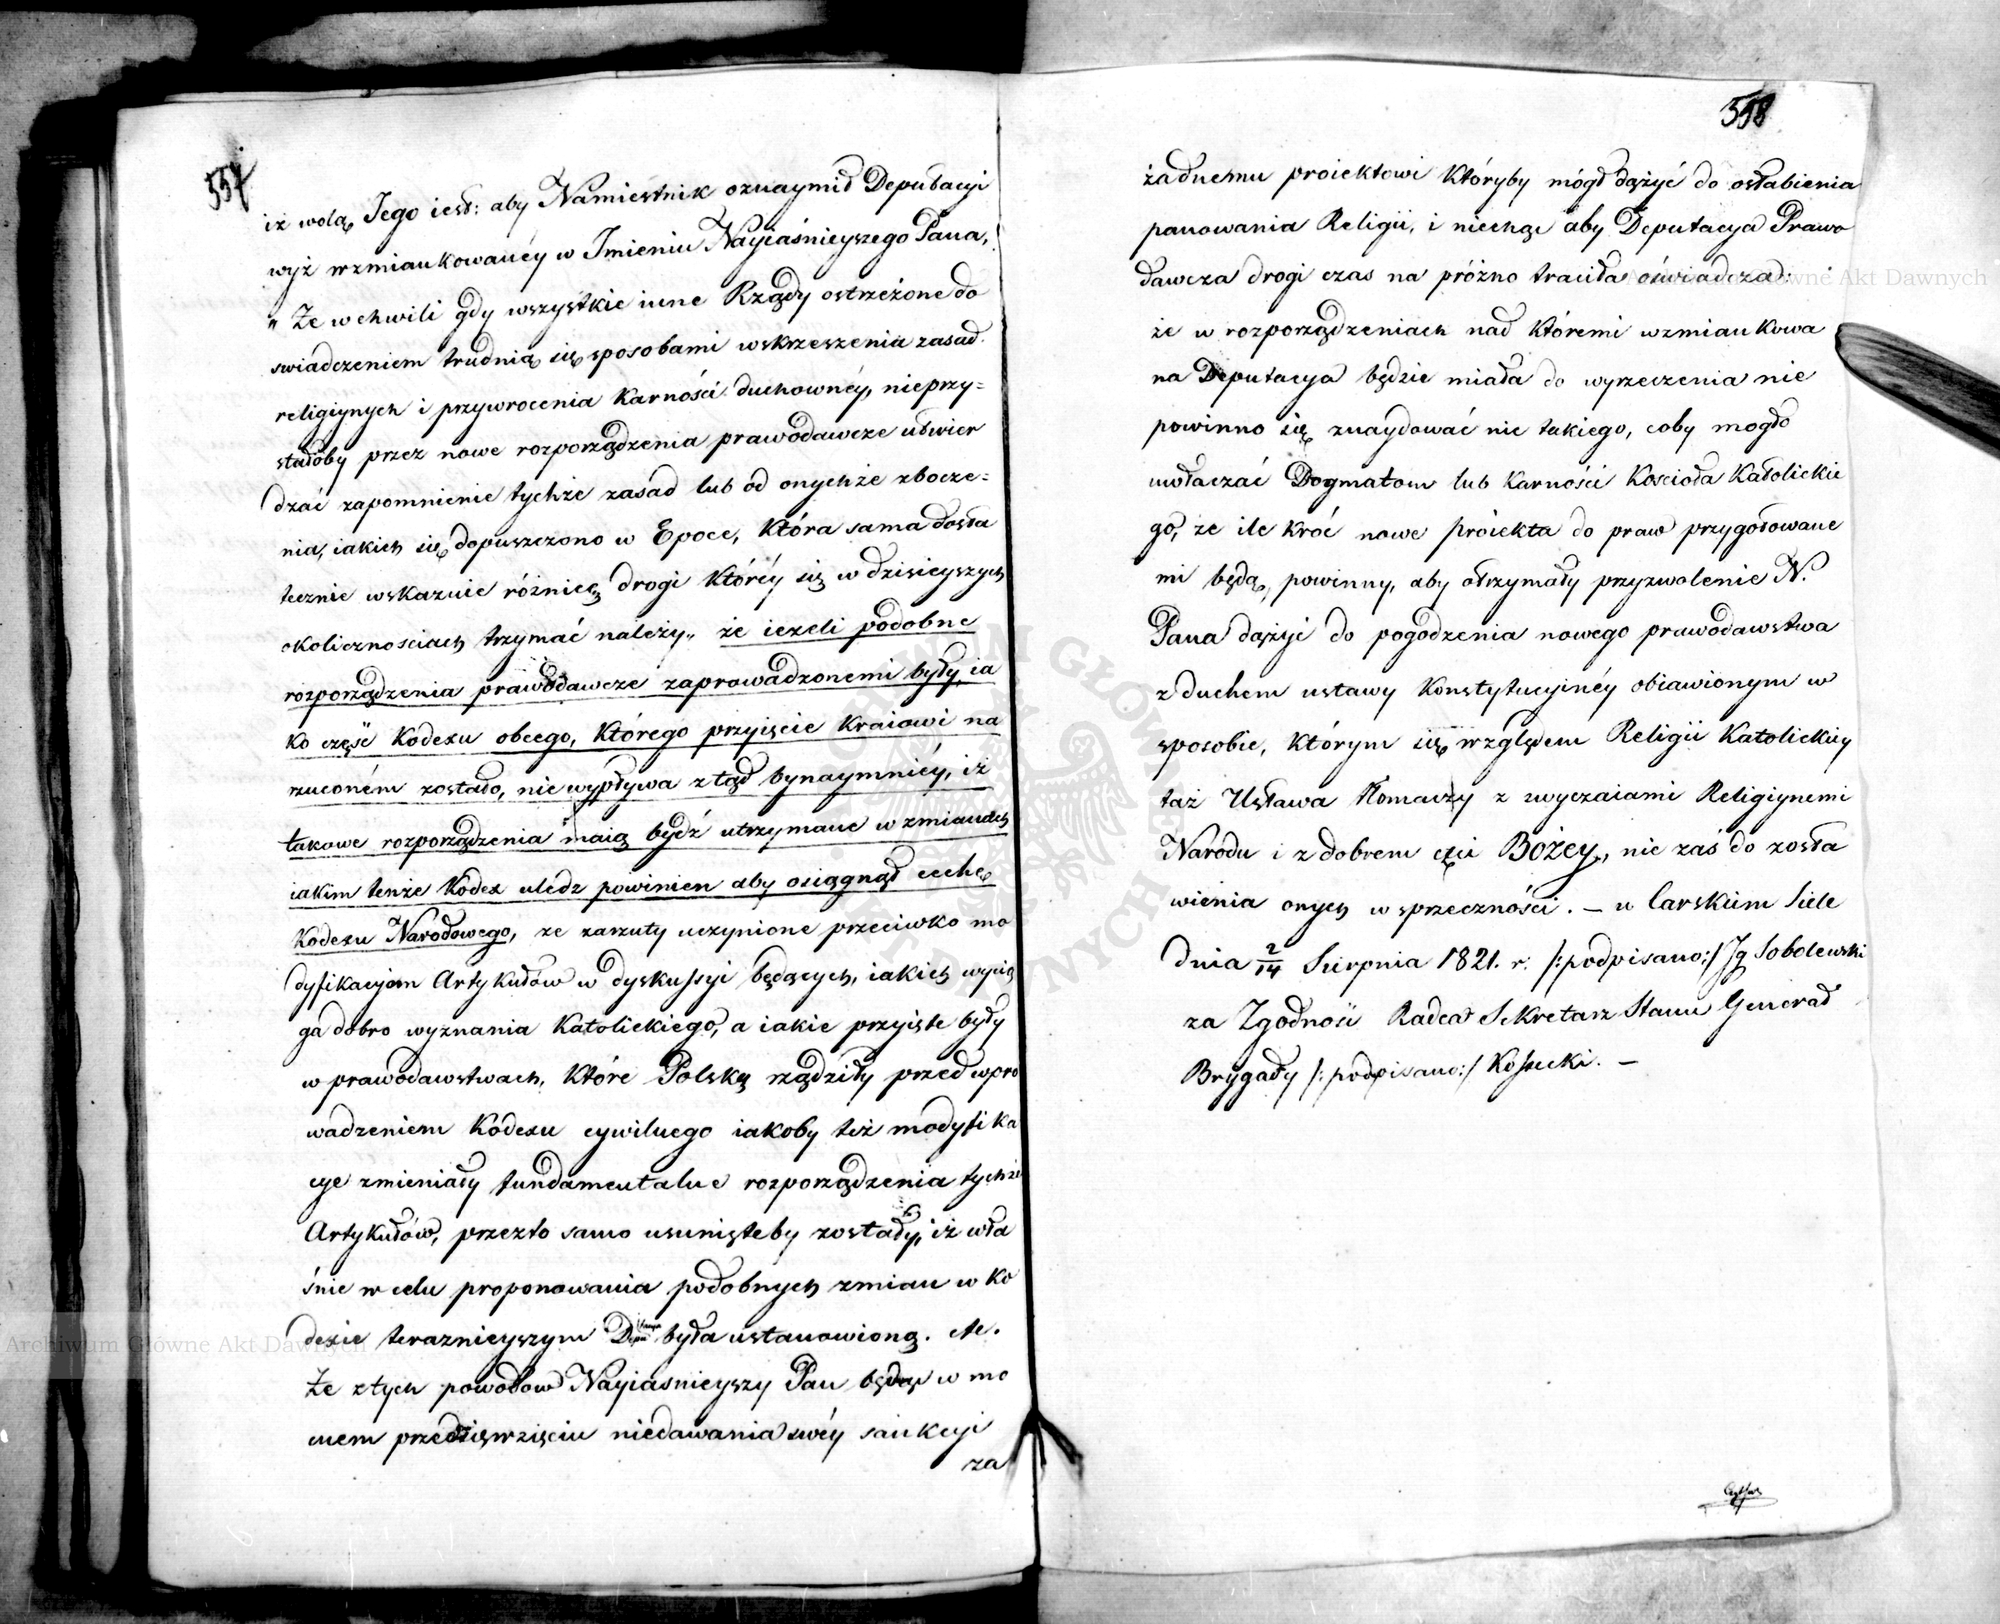 557
iż wolą Jego iest: aby Namiestnik oznaymił Deputacyi
wyż wzmiankowanéy w Imieniu Nayiaśnieyszego Pana,
„ Że w chwili gdy wszystkie inne Rządy ostrzeżone do
swiadczeniem trudnią się sposobami wskrzeszenia zasad
religiynych i przywrocenia Karności duchownéy, nieprzy=
stałoby przez nowe rozporządzenia prawodawcze utwier
dzać zapomnienie tychże zasad lub od onychże zbocze=
nia, iakich się dopuszczono w Epoce, Która sama dosta
tecznie wskazuie różnicę drogi Któréy się w dzisieyszych
okolicznosciach trzymać należy„ że ieżeli podobne
rozporządzenia prawodawcze zaprowadzonemi były, ia
ko część Kodexu obcego, Którego przyięcie Kraiowi na
rzuconém zostało, nie wypływa z tąd bynaymniéy, iż
takowe rozporządzenia maią bydź utrzymane w zmianach
iakim tenże Kodex uledz powinien aby osiągnął cechę
Kodexu Narodowego, ze zarzuty uczynione przeciwko mo
dyfikacyiom Artykułów w dyskussyi będących, iakich wycią
ga dobro wyznania Katolickiego, a iakie przyięte były
w prawodawstwach, Które Polską rządziły przed wpro
wadzeniem Kodexu cywilnego iakoby też modyfika
cye zmieniały fundamentalne rozporządzenia tychże
Artykułów, przezto samo usunięteby zostały, iż wła
śnie w celu proponowania podobnych zmian w Ko
dexie teraznieyszym Deputacya była ustanowioną. etc.
Że z tych powodow Nayiasnieyszy Pan będąc w mo
cnem przedsięwzięciu niedawania swéy sankcyi
za
558
żadnemu proiektowi Któryby mógł dążyć do osłabienia
panowania Religii, i niechcąc aby Deputacya Prawo
dawcza drogi czas na próżno traciła oświadczać:
że w rozporządzeniach nad Któremi wzmiankowa
na Deputacya będzie miała do wyrzeczenia nie
powinno się znaydować nic takiego, coby mogło
uwłaczać Dogmatom lub Karności Kościoła Katolickie
go, że ile Króć nowe proiekta do praw przygotowane
mi będą, powinny, aby otrzymały przyzwolenie N.
Pana dążyć do pogodzenia nowego prawodawstwa
z duchem ustawy Konstytucyinéy obiawionym w
sposobie, Którym się względem Religii Katolickiey
taż Ustawa tłomaczy z zwyczaiami Religiynemi
Narodu i z dobrem czci Bożey, nie zaś do zosta
wienia onych w sprzeczności. — w Carskiem Siele
dnia 2/14 Sierpnia 1821. r. /:podpisano:/ Jg Sobolewski
za Zgodność Radca Sekretarz Stanu Generał
Brygady /:podpisano:/ Kossecki. —
Archiwum Główne Akt Dawnych
Archiwum Główne Akt Dawnych